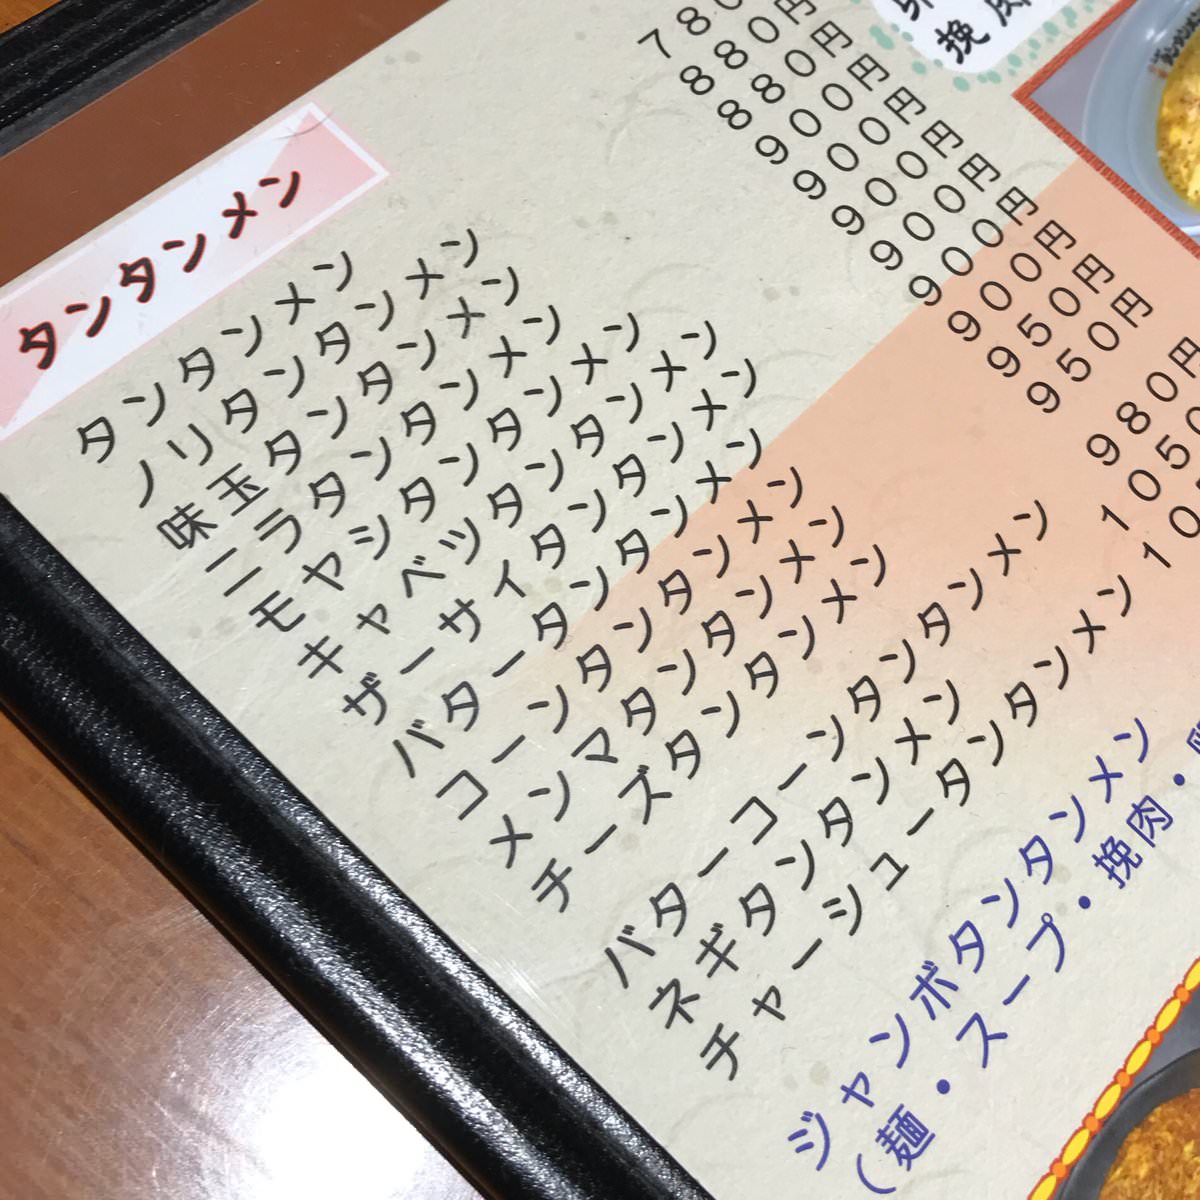 卵
挽肉
タンタンメン
タンタンメン 780
ノリタンタンメン 880円
味玉タンタンメン 880円
ニラタンタンメン 900円
モヤシタンタンメン 900円
キャベツタンタンメン 900円
ザーサイタンタンメン 900円
バタータンタンメン 900円
コーンタンタンメン 900円
メンマタンタンメン 950円
チーズタンタンメン 950円
バターコーンタンタンメン 980円
ネギタンタンメン 1050
チャーシュータンタンメン 105
ジャンボタンタンメン
(麺・スープ・挽肉・